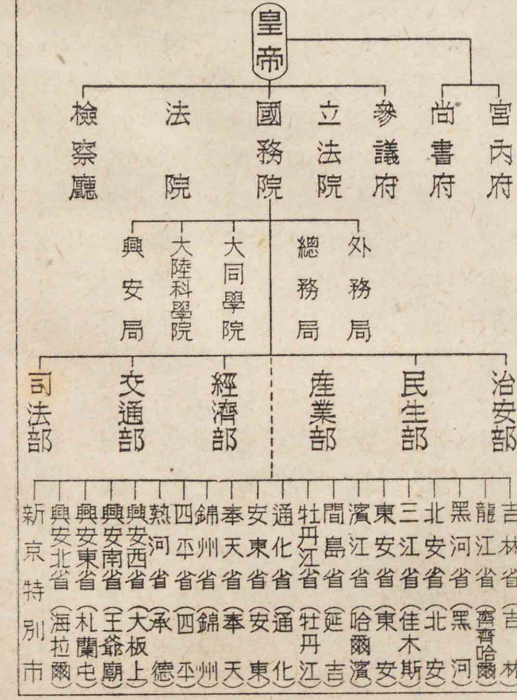 皇帝
宮內府
尚書府
參議府
立法院
國務院
法院
檢察廳
外務局
總務局
大同學院
大陸科學院
興安局
治安部
民生部
產業部
經濟部
交通部
司法部
吉林省（吉林
龍江省（齊齊哈爾）
黑河省（黑河）
北安省（北安）
三江省（佳木斯）
東安省（東安）
濱江省（哈爾濱）
間島省（延吉）
牡丹江省（牡丹江）
通化省（通化）
安東省（安東）
奉天省（奉天）
錦州省（錦州）
四平省（四平）
熱河省（承德）
興安西省（大板上）
興安南省（王爺廟）
興安東省（札蘭屯）
興安北省（海拉爾）
新京特別市